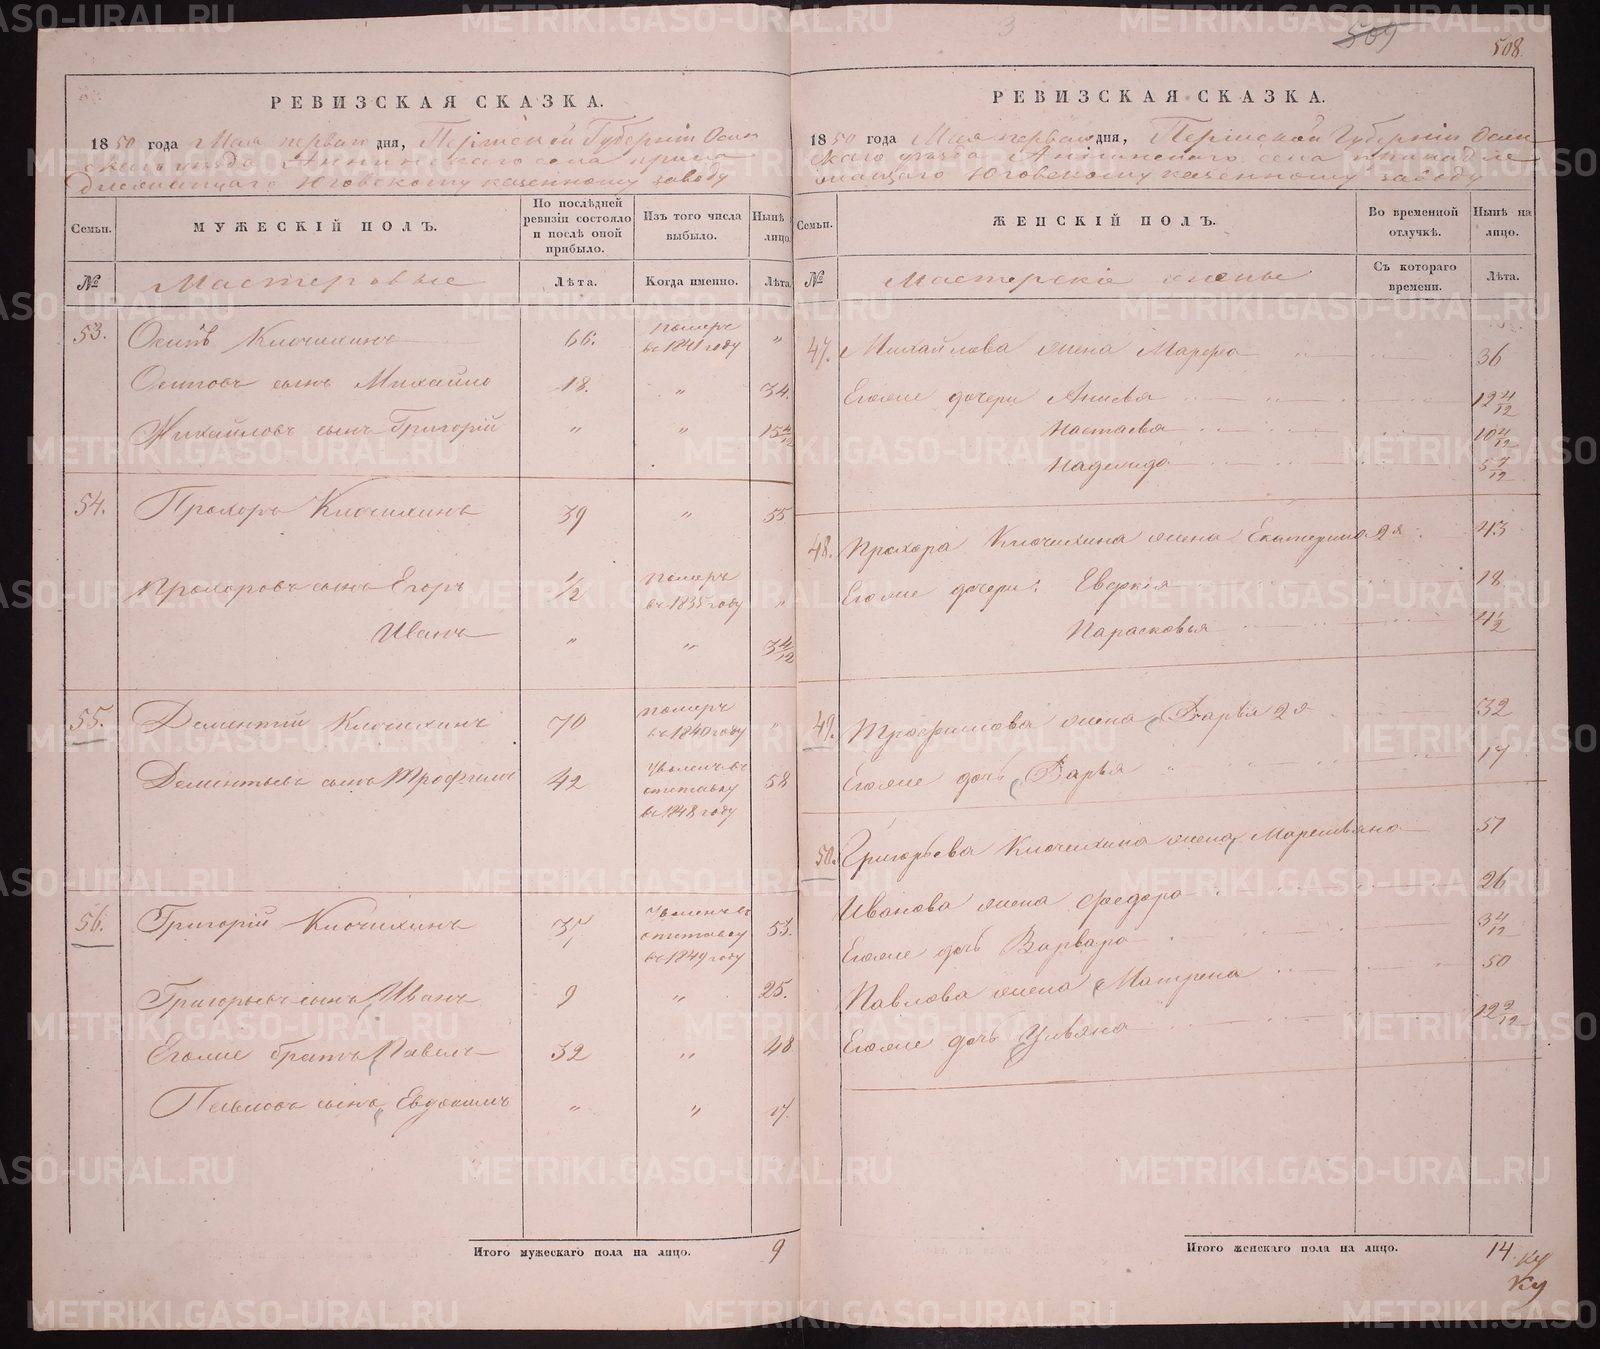 3
509
508.
РЕВИЗСКАЯ СКАЗКА.
1850 года Мая первая дня, Пермской Губернiи Осин
скаго уезда Аннинскаго села принад
лежащаго Юговскому казенному заводу
Семьи.
МУЖЕСКIЙ ПОЛЪ.
По послѣдней ревизiи состояло и послѣ оной прибыло.
Изъ того числа выбыло.
Нынѣ лицо.
№
Мастеровые
Лѣта.
Когда именно.
Лѣта
53. Осипъ Ключихинъ 66. померъ въ 1841 году "
Осиповъ сынъ Михайло 18. " 34.
Михайловъ сынъ Григорiй " " 15 4/12
54. Прохоръ Ключихинъ 39 " 55
Прохоровъ сынъ Егоръ 1/2 померъ въ 1835 году "
Иванъ " " 3 4/12
55. Дементiй Ключихинъ 70 померъ въ 1840 году "
Дементьевъ сынъ Трофимъ 42 уволенъ въ отставку въ 1848 году 58
56. Григорiй Ключихинъ 37 уволенъ въ отставку въ 1849 году 53.
Григорьевъ сынъ Иванъ 9 " 25.
Егоже братъ Павелъ 32 " 48
Павловъ сынъ Евдокимъ " " 17.
Итого мужескаго пола на лицо. 9
РЕВИЗСКАЯ СКАЗКА.
1850 года Мая первая дня, Пермской Губернiи Осин
скаго уезда Аннинскаго села принадле
жащаго Юговскому казенному заводу
Семьи.
ЖЕНСКIЙ ПОЛЪ.
Во временной отлучкѣ.
Нынѣ на лицо.
№
Мастерскiе жены
Съ котораго времени.
Лѣта.
47. Михайлова жена Марфа 36
Егоже дочери Анисья 12 4/12
Настасья 10 4/12
Надежда 5 7/12
48. Прохора Ключихина жена Екатерина 2я 43
Егоже дочери: Евдокiя 18
Парасковья 4 1/2
49. Трофимова жена Дарья 2я 32
Егоже дочь Дарья 17
50. Григорьева Ключихина жена Маремьяна 51
Иванова жена Федора 26
Егоже дочь Варвара 3 4/12
Павлова жена Матрена 50
Егоже дочь Ульяна 12 9/12
Итого женскаго пола на лицо. 14
METRIKI.GASO-URAL.RU